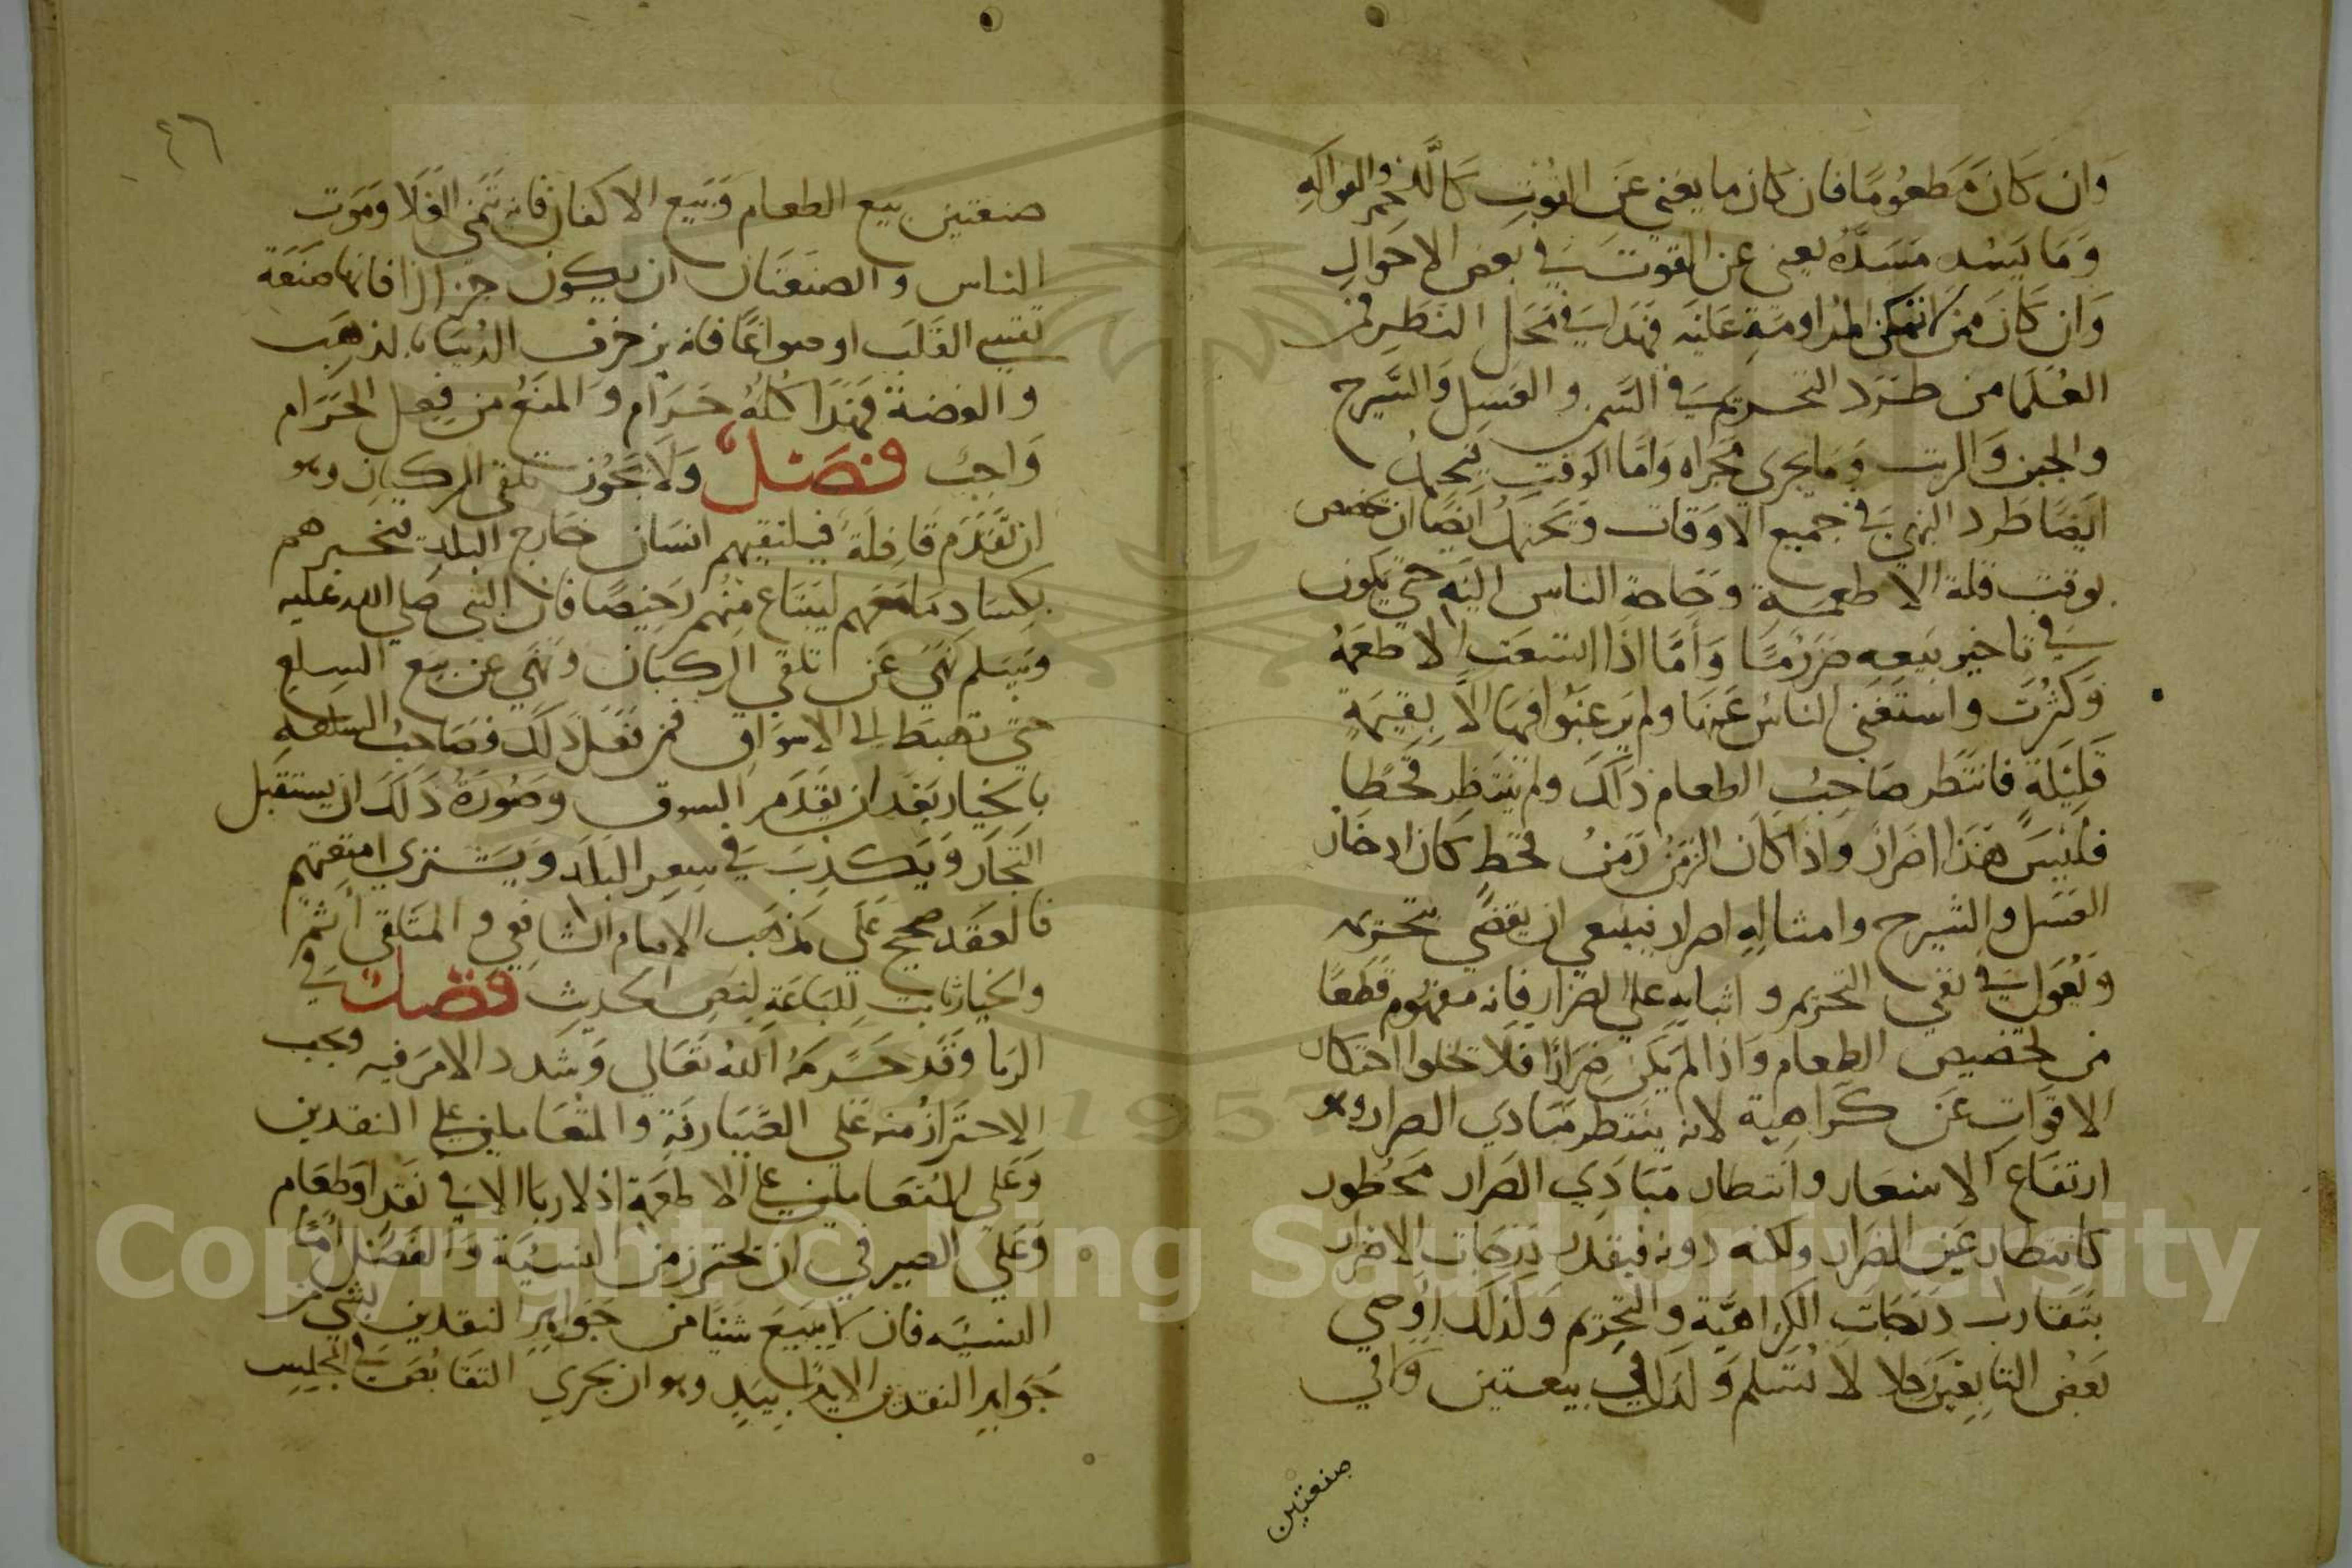 وَان كَانَ مَطعُومًا فان كان ما يغني عَن القُوتِ كاللحُم والفواكه
وَمَا يَسُد مَسَدَّهُ يعني عن القوت في بَعض الاحوَالِ
وَان كَانَ من لا تمكن المُداومَةِ عَليْه فهَذا في مَحَل النظر فمن
العُلمَا من طَرَد التحريم في السَّمن والعَسل وَالشَّيرج
والجبن وَالزيت وَمَا يجري مَجراه وَامّا الوقت يحتمل
ايضًا طَرد النهي في جميع الاوقات وَيحتمل ايضًا ان تخصص
بوقت قلة الاطعمَةِ وحَاجة الناس اليه حَتي يكون
في تاخير بَيعهِ ضررمَّا وَأمَّا اذَا اتسعَت الاطعمَهُ
وَكثُرَت واستَغنى الناسُ عَنهَا ولم يرغبُوا فيهَا الا بقيمَةٍ
قَليْلَةٍ فانتَظر صَاحِبُ الطعام ذلك ولم يَنتَظِر قحطًا
فَليْسَ هَذا اضرار واذا كان الزمَن زَمَنُ قحط كان ادخار
العَسَل والشيرج وامثالِهِ اضرار ينبغي ان يقضي بتحريمه
وَيُعَول في نفي التحريم واثباته على الضرار فانه مفهُوم قطعًا
من تخصيص الطعام وَاذا لم يَكن ضِرَارًا فَلا تخلوا احتكار
الاقوَاتِ عَن كَراهيةَ لانه ينتظر مَبادي الضرار وهو
ارتفَاع الاسعار وانتظار مَبَادِي الضرار مَحظور
كانتظار عَين الضرار ولكنه دونه فبقدر دَرجَات الاضرار
يتَقارب دَرَجَات الكراهيَّة والتحريم وَكذلك اوصي
بَعض التابعين رجلا لا تُسَلم وَلدك في بيعتين وَفي
صنعتين
٤٦
صنعتين بيَع الطعام وَبَيع الاكفان فانه يَتَمني الغَلا ومَوت
الناس والصنعَتَان ان يكون جزارا فانها صَنعَة
تقسي القَلب او صواغًا فانه يزخرف الدُنيَا بالذهَب
والفضة فهَذا كلهُ حَرام وَالمنَعُ من فِعل الحَرَام
وَاجبٌ فصَل وَلا يَجُوز تلقي الركبان وهو
ان تقدَم قَافلة فيلتقيهم انسَان خَارج البلدِ فيخبرهم
بكسَاد مَامعَهم ليبتاع منهُم رَخيصًا فان النبي صَلي الله عَليه
وسَلم نَهيَ عَن تلقي الركبَان ونهَي عن بيَع السلع
حَتي تهبَط الى الاسوَاق فمن فعَل ذلك فصَاحبُ السلعه
بالخيار بَعدَ ان يَقدَم السوق وصُورَةُ ذَلكَ ان يستَقبل
التجار وَيكذب في سِعر البَلد وَيَشتري امتِعَتهم
فالعقد صحيح عَلَي مَذهَب الامام الشافعي والمتَلقي أثم
والخيار ثابت لِلبَاعَةِ لنَصِ الحديث فصَل في
الربا وَقَد حَرمَهُ اللهُ تعَالي وَشدد الامرَ فيه ويجب
الاحترازُ منه عَلي الصَّيارفة والمتعَاملين على النقدين
وَعَلي المُتعَاملين على الاطعمَة اذ لاربَا الا في نقد اوطعَام
وَعَلي الصيرفي ان يحترز من النسيَّة وَالفَضل أمّا
النسيّه فان لا يَبيعَ شَيًا من جَواهرِ النقدين بشي من
جَواهر النقدين الا يَدًا بيَدٍ وهو ان يجري التقابُض في المجلِس